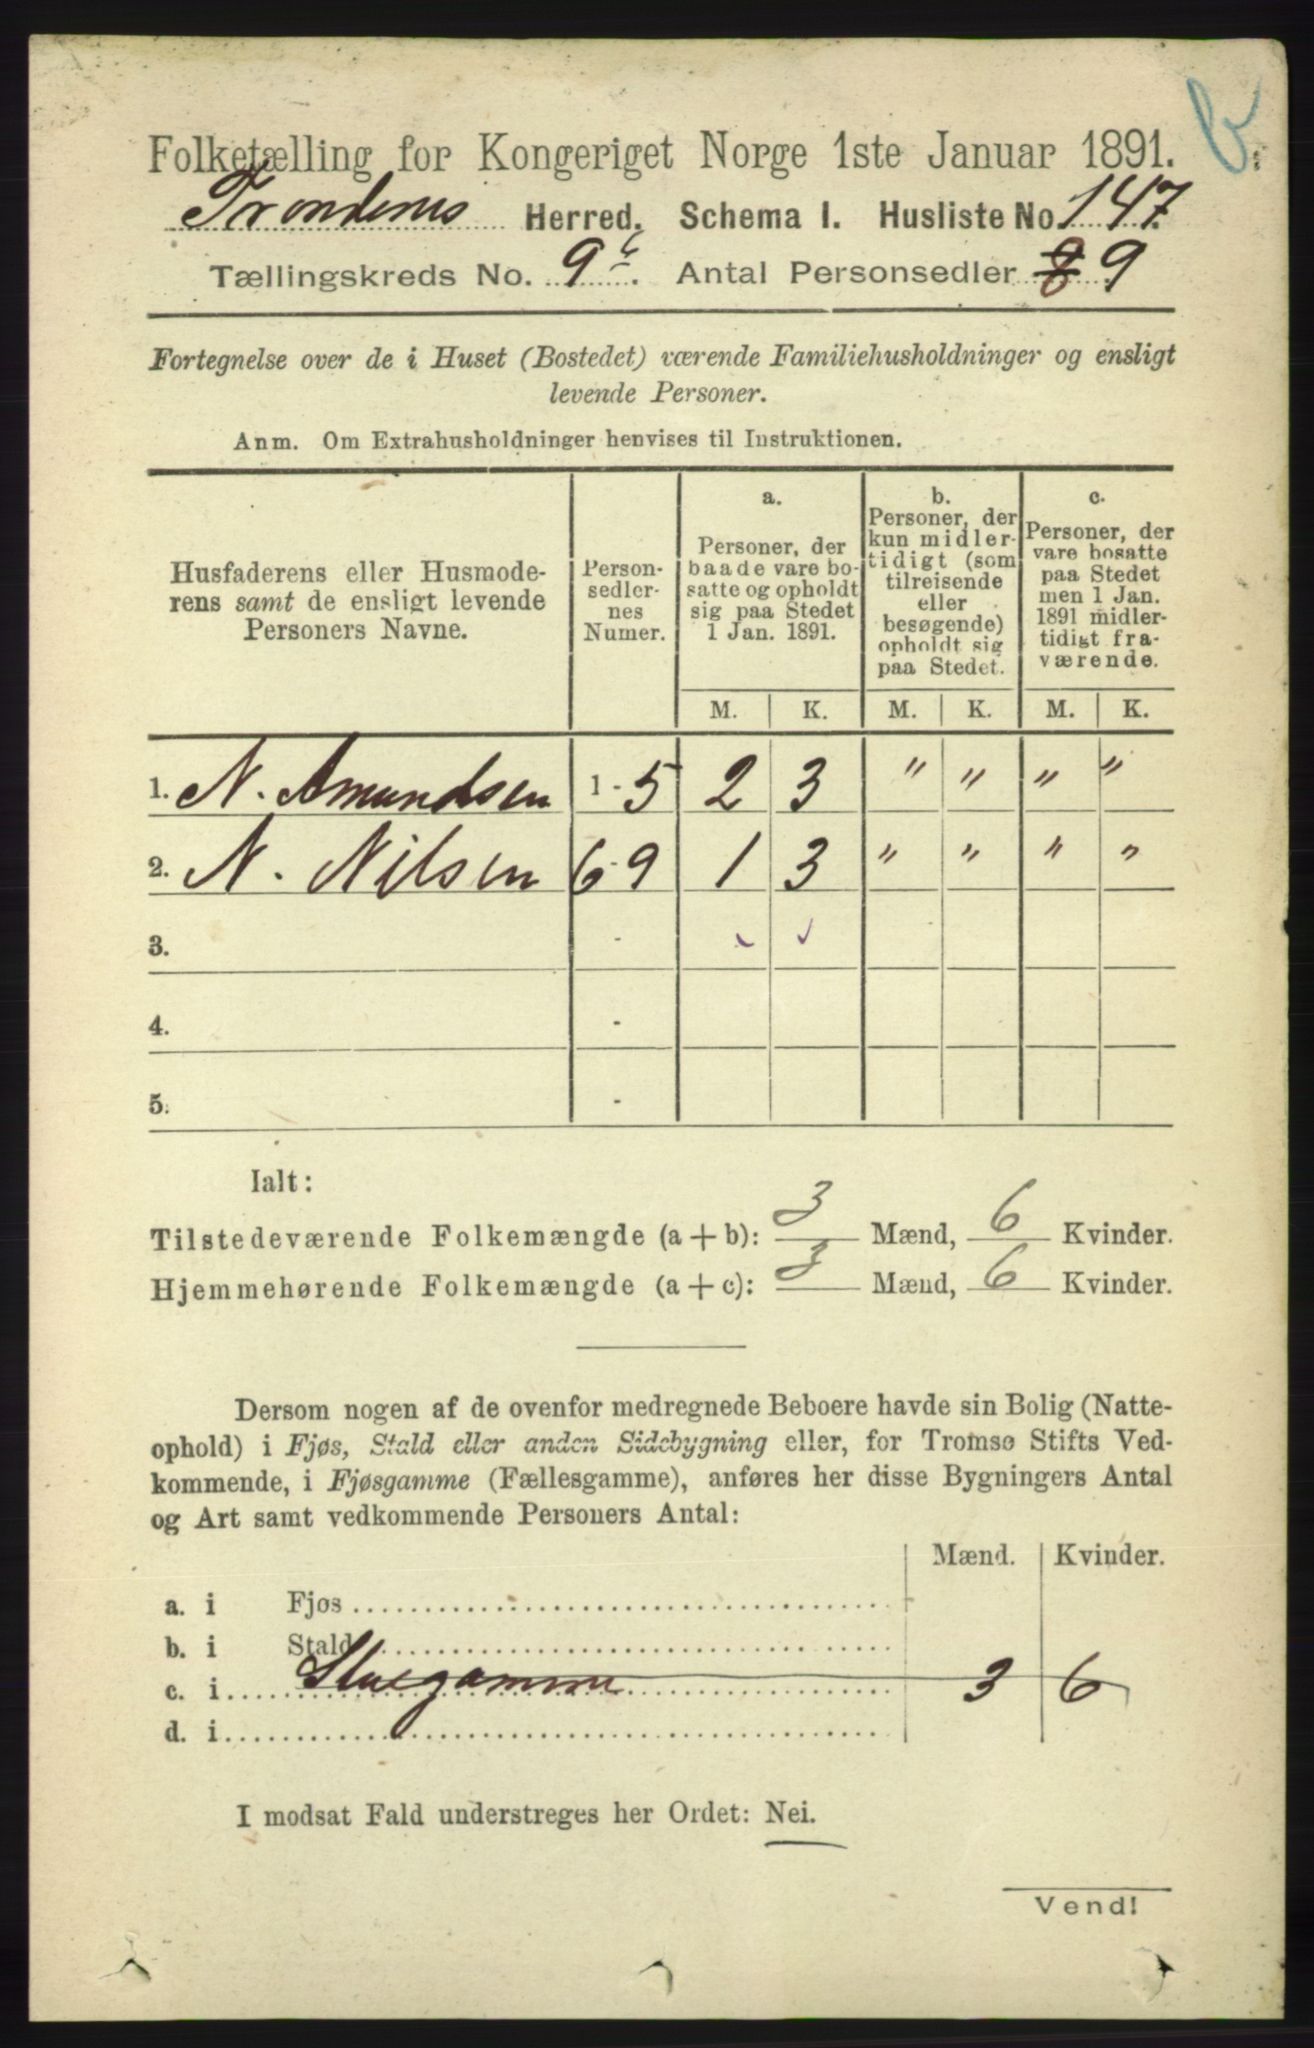 b.
Folketælling for Kongeriget Norge 1ste Januar 1891.
Trondenes Herred. Schema I. Husliste No. 147.
Tællingskreds No. 9c. Antal Personsedler 8 9
Fortegnelse over de i Huset (Bostedet) værende Familiehusholdninger og ensligt
levende Personer.
Anm. Om Extrahusholdninger henvises til Instruktionen.
Husfaderens eller Husmode-
rens samt de ensligt levende
Personers Navne.
Person-
sedler-
nes
Numer.
a.
Personer, der
baade vare bo-
satte og opholdt
sig paa Stedet
1 Jan. 1891.
b.
Personer, der
kun midler-
tidigt (som
tilreisende
eller
besøgende)
opholdt sig
paa Stedet.
c.
Personer, der
vare bosatte
paa Stedet
men 1 Jan.
1891 midler-
tidigt fra-
værende.
M. K. M. K. M. K.
1. N. Amundsen 1 - 5 2 3 " " " "
2. N. Nilsen 6 - 9 1 3 " " " "
3. -
4. -
5. -
Ialt:
Tilstedeværende Folkemængde (a + b): 3 Mænd, 6 Kvinder.
Hjemmehørende Folkemængde (a + c): 3 Mænd, 6 Kvinder.
Dersom nogen af de ovenfor medregnede Beboere havde sin Bolig (Natte-
ophold) i Fjøs, Stald eller anden Sidebygning eller, for Tromsø Stifts Ved-
kommende, i Fjøsgamme (Fællesgamme), anføres her disse Bygningers Antal
og Art samt vedkommende Personers Antal:
Mænd. Kvinder.
a. i Fjøs
b. i Stald
c. i Stuegamme 3 6
d. i
I modsat Fald understreges her Ordet: Nei.
Vend!